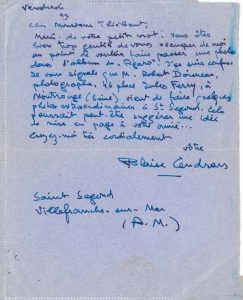 Vendredi
49
Cher Monsieur Thiébaut
Merci de votre petit mot. Vous êtes
bien trop gentil de vous occuper de moi
au point de vouloir faire passer une photo
dans l'album du Figaro! J'en suis confus.
Je vous signale que M. Robert Doisneau,
photographe, 46 place Jules Ferry, à
Montrouge (Seine) vient de faire quelques
photos extraordinaires à St Segond. Cela
pourrait peut-être suggérer une idée
de mise en page à votre ami...
croyez-moi très cordialement
vôtre
Blaise Cendrars
Saint Segond
Villefranche-sur-Mer
(A.M.)